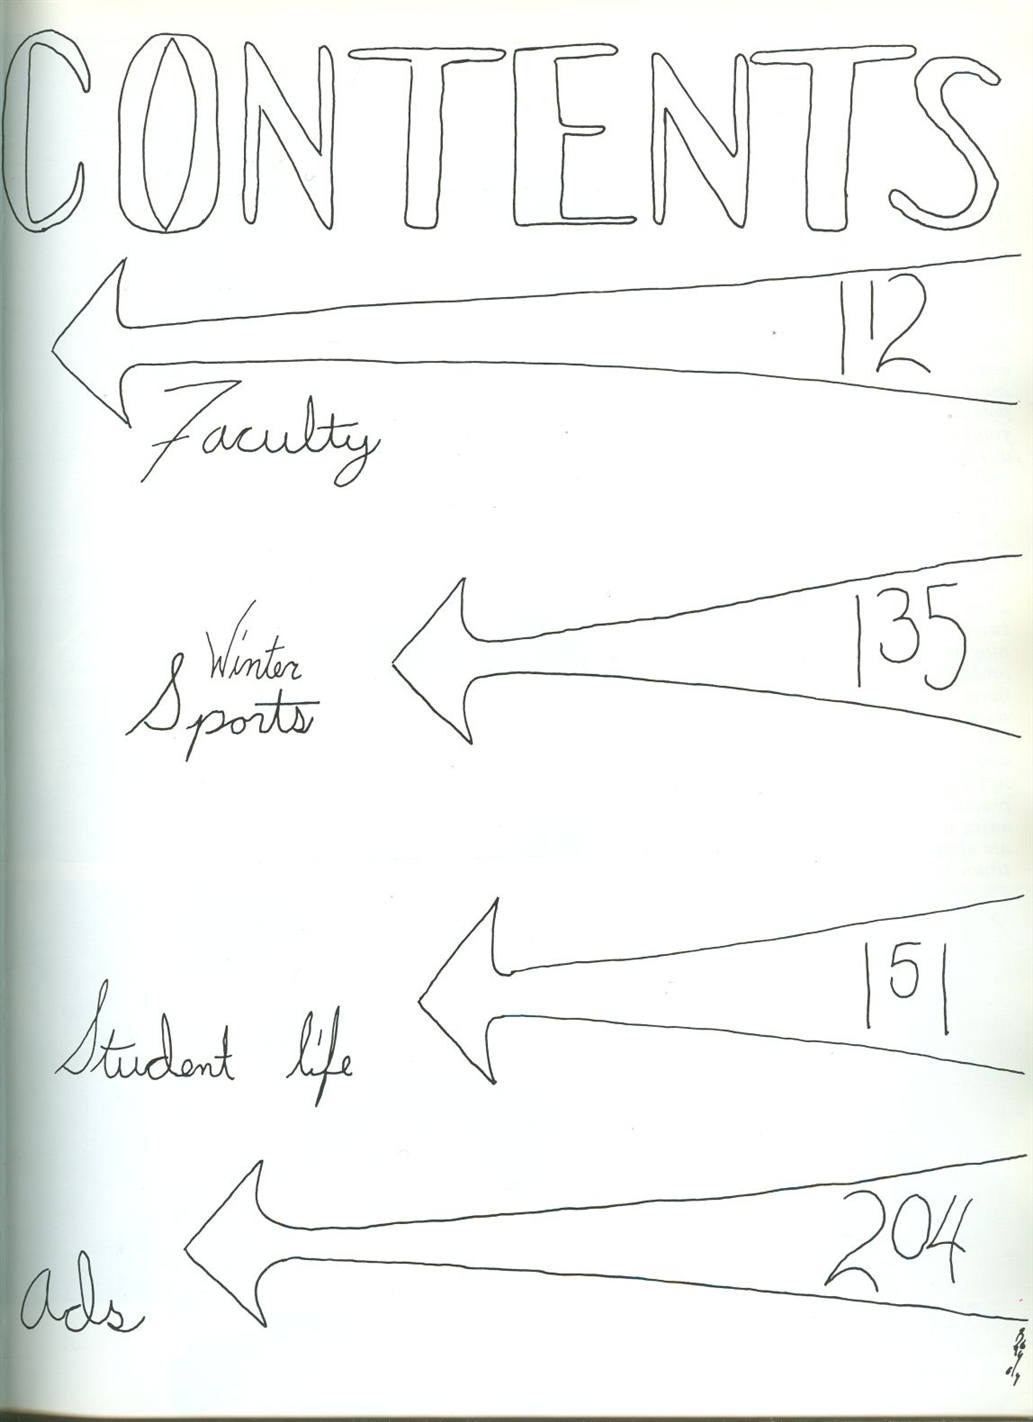 CONTENTS
112
Faculty
135
Winter
Sports
151
Student life
204
Ads